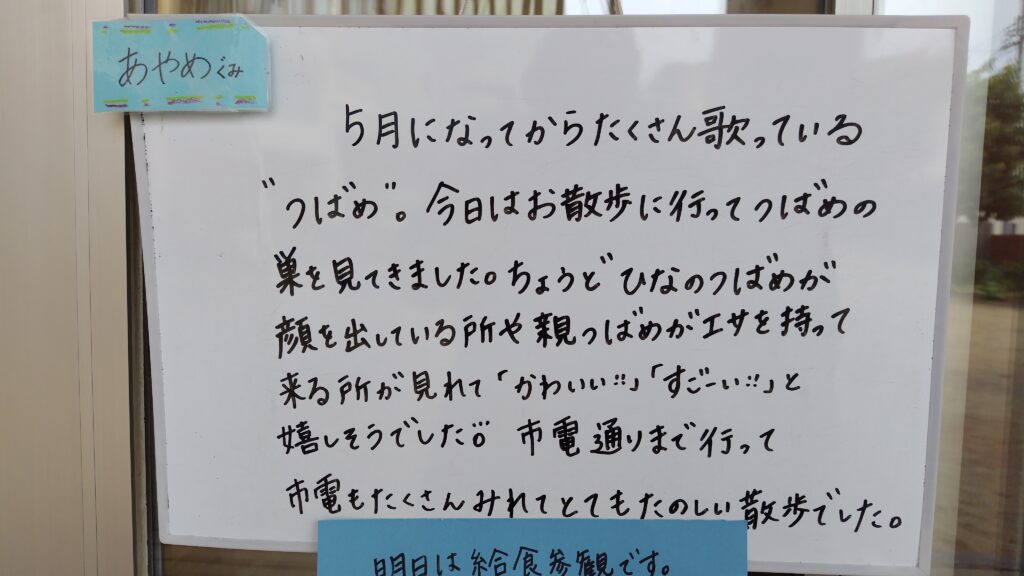 あやめぐみ
5月になってからたくさん歌っている
"つばめ"。今日はお散歩に行ってつばめの
巣を見てきました。ちょうどひなのつばめが
顔を出している所や親つばめがエサを持って
来る所が見れて「かわいい!!」「すごーい!!」と
嬉しそうでした。市電通りまで行って
市電もたくさんみれてとてもたのしい散歩でした。
明日は給食参観です。